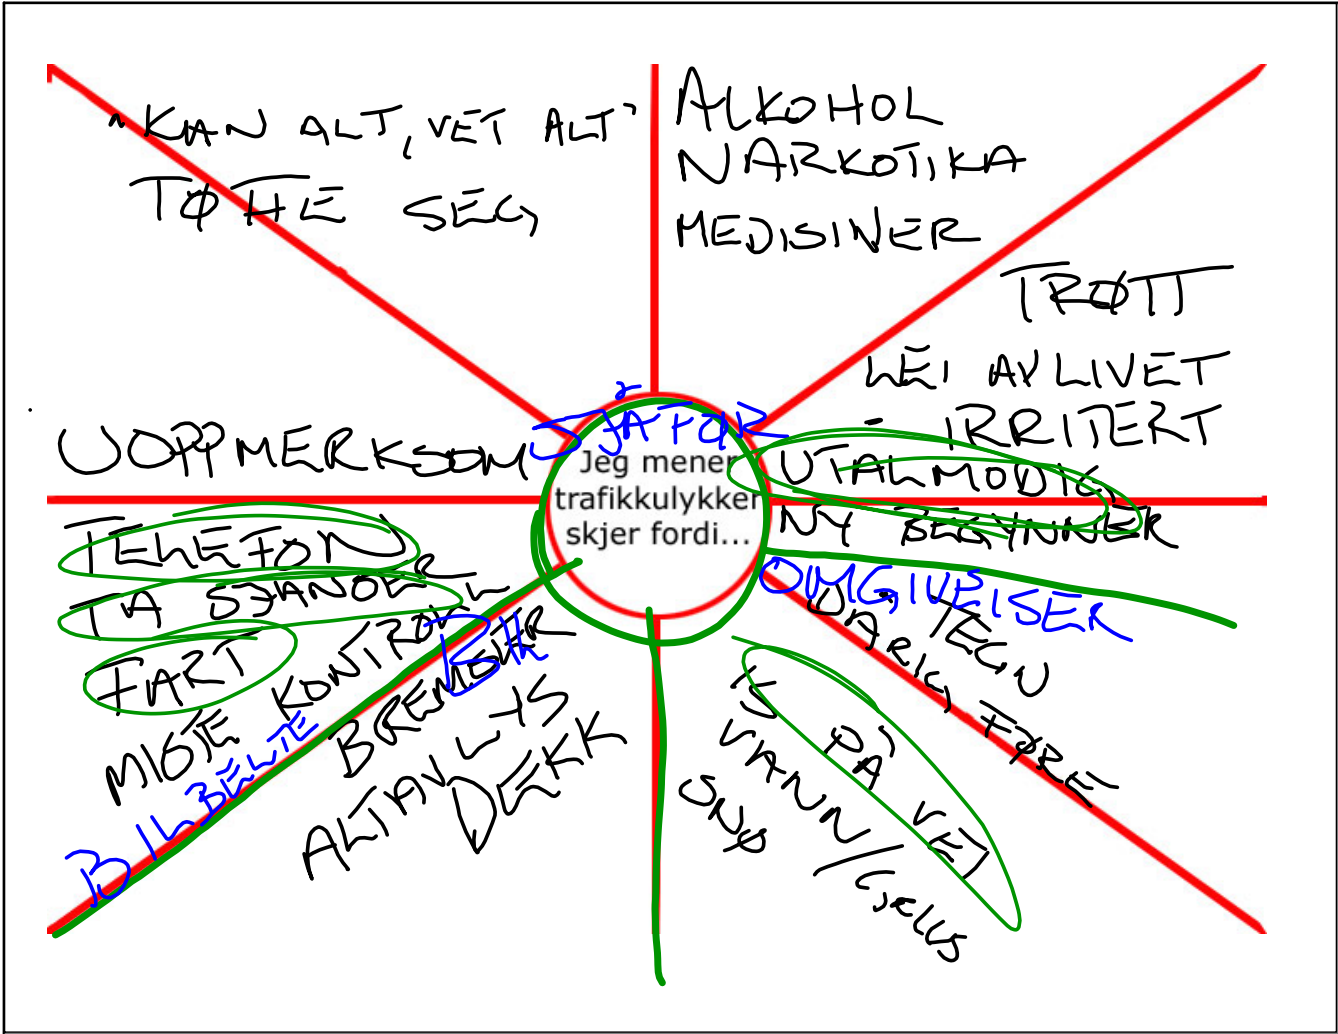 "KAN ALT, VET ALT"
TØFFE SEG
ALKOHOL
NARKOTIKA
MEDISINER
TRØTT
LEI AV LIVET
- IRRITERT
UTALMODIG
NY BEGYNNER
UOPPMERKSOM
SJÅFØR
Jeg mener
trafikkulykker
skjer fordi...
TELEFON
TA SJANSER
FART
MISTE KONTROLL
BILBELTE
BIL
BREMSER
ALTAV LYS
DEKK
OMGIVELSER
TEGN
DÅRLIG FØRE
IS PÅ VEI
VANN/GJELLUS
SNØ